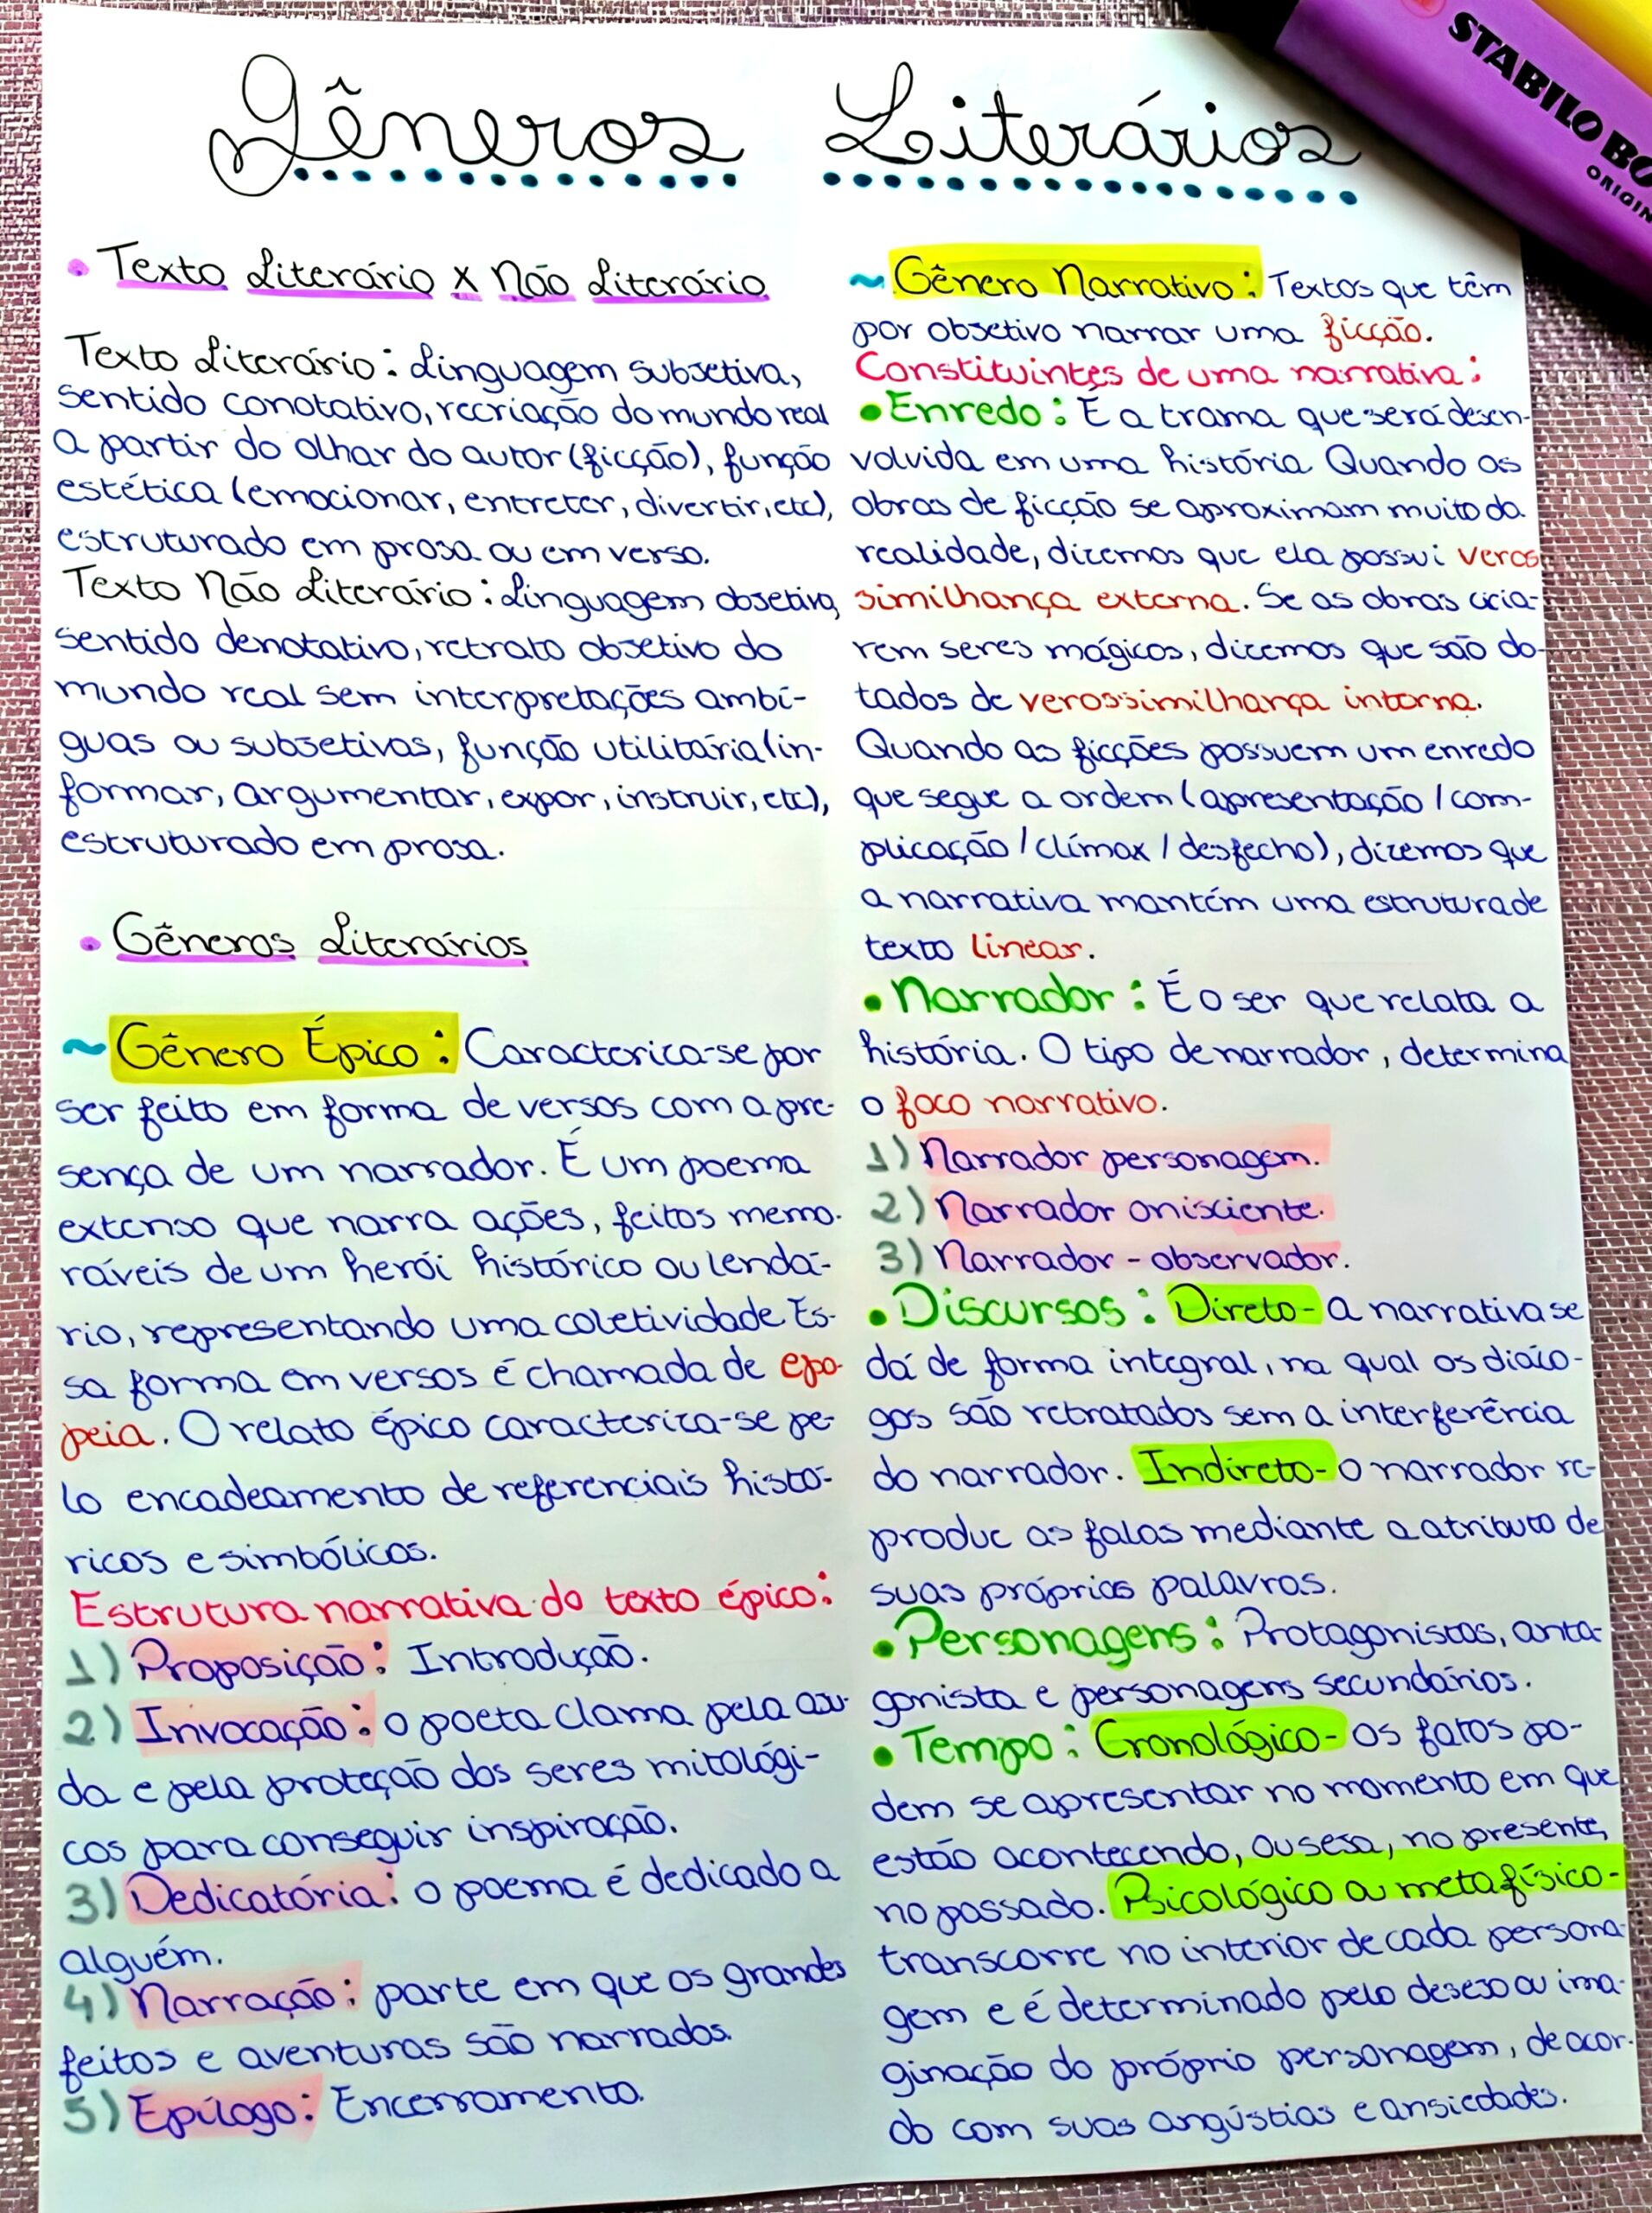 Gêneros Literários
STABILO BO
ORIGIN
• Texto Literário x Não Literário
Texto Literário: Linguagem subjetiva,
sentido conotativo, recriação do mundo real
a partir do olhar do autor (ficção), função
estética (emocionar, entreter, divertir, etc),
estruturado em prosa ou em verso.
Texto Não Literário: Linguagem objetiva,
sentido denotativo, retrato objetivo do
mundo real sem interpretações ambí-
guas ou subjetivas, função utilitária (in-
formar, argumentar, expor, instruir, etc),
estruturado em prosa.
• Gêneros Literários
~ Gênero Épico: Caracteriza-se por
ser feito em forma de versos com a pre-
sença de um narrador. É um poema
extenso que narra ações, feitos memo-
ráveis de um herói histórico ou lendá-
rio, representando uma coletividade. Es-
sa forma em versos é chamada de epo-
peia. O relato épico caracteriza-se pe-
lo encadeamento de referenciais histó-
ricos e simbólicos.
Estrutura narrativa do texto épico:
1) Proposição: Introdução.
2) Invocação: o poeta clama pela aju-
da e pela proteção dos seres mitológi-
cos para conseguir inspiração.
3) Dedicatória: o poema é dedicado a
alguém.
4) Narração: parte em que os grandes
feitos e aventuras são narrados.
5) Epílogo: Encerramento.
~ Gênero Narrativo: Textos que têm
por objetivo narrar uma ficção.
Constituintes de uma narrativa:
• Enredo: É a trama que será desen-
volvida em uma história. Quando as
obras de ficção se aproximam muito da
realidade, dizemos que ela possui veros
similhança externa. Se as obras cria-
rem seres mágicos, dizemos que são do-
tados de verossimilhança interna.
Quando as ficções possuem um enredo
que segue a ordem (apresentação / com-
plicação / clímax / desfecho), dizemos que
a narrativa mantém uma estrutura de
texto linear.
• Narrador: É o ser que relata a
história. O tipo de narrador, determina
o foco narrativo.
1) Narrador personagem.
2) Narrador onisciente.
3) Narrador - observador.
• Discursos: Direto - a narrativa se
dá de forma integral, na qual os diálo-
gos são retratados sem a interferência
do narrador. Indireto - o narrador re-
produz as falas mediante a atributo de
suas próprias palavras.
• Personagens: Protagonistas, anta-
gonista e personagens secundários.
• Tempo: Cronológico - os fatos po-
dem se apresentar no momento em que
estão acontecendo, ou seja, no presente,
no passado. Psicológico ou metafísico -
transcorre no interior de cada persona-
gem e é determinado pelo desejo ou ima-
ginação do próprio personagem, de acor-
do com suas angústias e ansiedades.